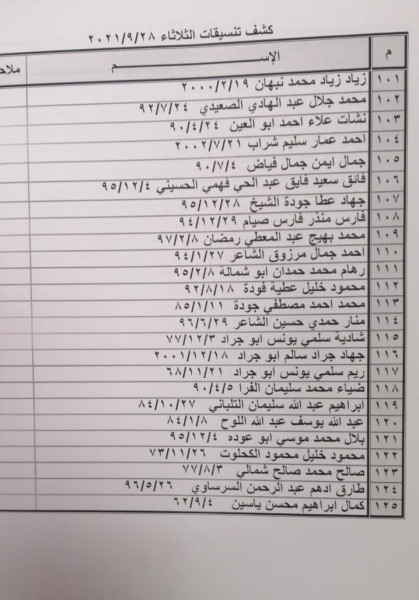 كشف تنسيقات الثلاثاء ٢٠٢١/٩/٢٨
م الإســـم ملاحـ
١٠١ زياد زياد محمد نبهان ٢٠٠٠/٢/١٩
١٠٢ محمد جلال عبد الهادي الصعيدي ٩٢/٧/٢٤
١٠٣ نشات علاء احمد ابو العين ٩٠/٤/٢٤
١٠٤ احمد عمار سليم شراب ٢٠٠٢/٧/٢١
١٠٥ جمال ايمن جمال فياض ٩٠/٧/٤
١٠٦ فائق سعيد فايق عبد الحي فهمي الحسيني ٩٥/١٢/٤
١٠٧ جهاد عطا جودة الشيخ ٩٥/١٢/٢٨
١٠٨ فارس منذر فارس صيام ٩٤/١٢/٢٩
١٠٩ محمد بهيج عبد المعطي رمضان ٩٧/٢/٨
١١٠ احمد جمال مرزوق الشاعر ٩٤/١/٢٧
١١١ رهام محمد حمدان ابو شمالة ٩٥/٢/٨
١١٢ محمود خليل عطية فودة ٩٢/٨/١٨
١١٣ محمد احمد مصطفي جودة ٨٥/١/١١
١١٤ منار حمدي حسين الشاعر ٩٦/٦/٢٩
١١٥ شادية سلمي يونس ابو جراد ٧٧/١٢/٣
١١٦ جهاد جراد سالم ابو جراد ٢٠٠١/١٢/١٨
١١٧ ريم سلمي يونس ابو جراد ٦٨/١١/٢١
١١٨ ضياء محمد سليمان الفرا ٩٠/٤/٥
١١٩ ابراهيم عبد الله سليمان التلباني ٨٤/١٠/٢٧
١٢٠ عبد الله يوسف عبد الله اللوح ٨٤/١/٨
١٢١ بلال محمد موسي ابو عوده ٩٥/١٢/٤
١٢٢ محمود خليل محمود الكحلوت ٧٣/١١/٢٦
١٢٣ صالح محمد صالح شمالي ٧٧/٨/٣
١٢٤ طارق ادهم عبد الرحمن السرساوي ٩٦/٥/٢٦
١٢٥ كمال ابراهيم محسن ياسين ٦٢/٩/٤